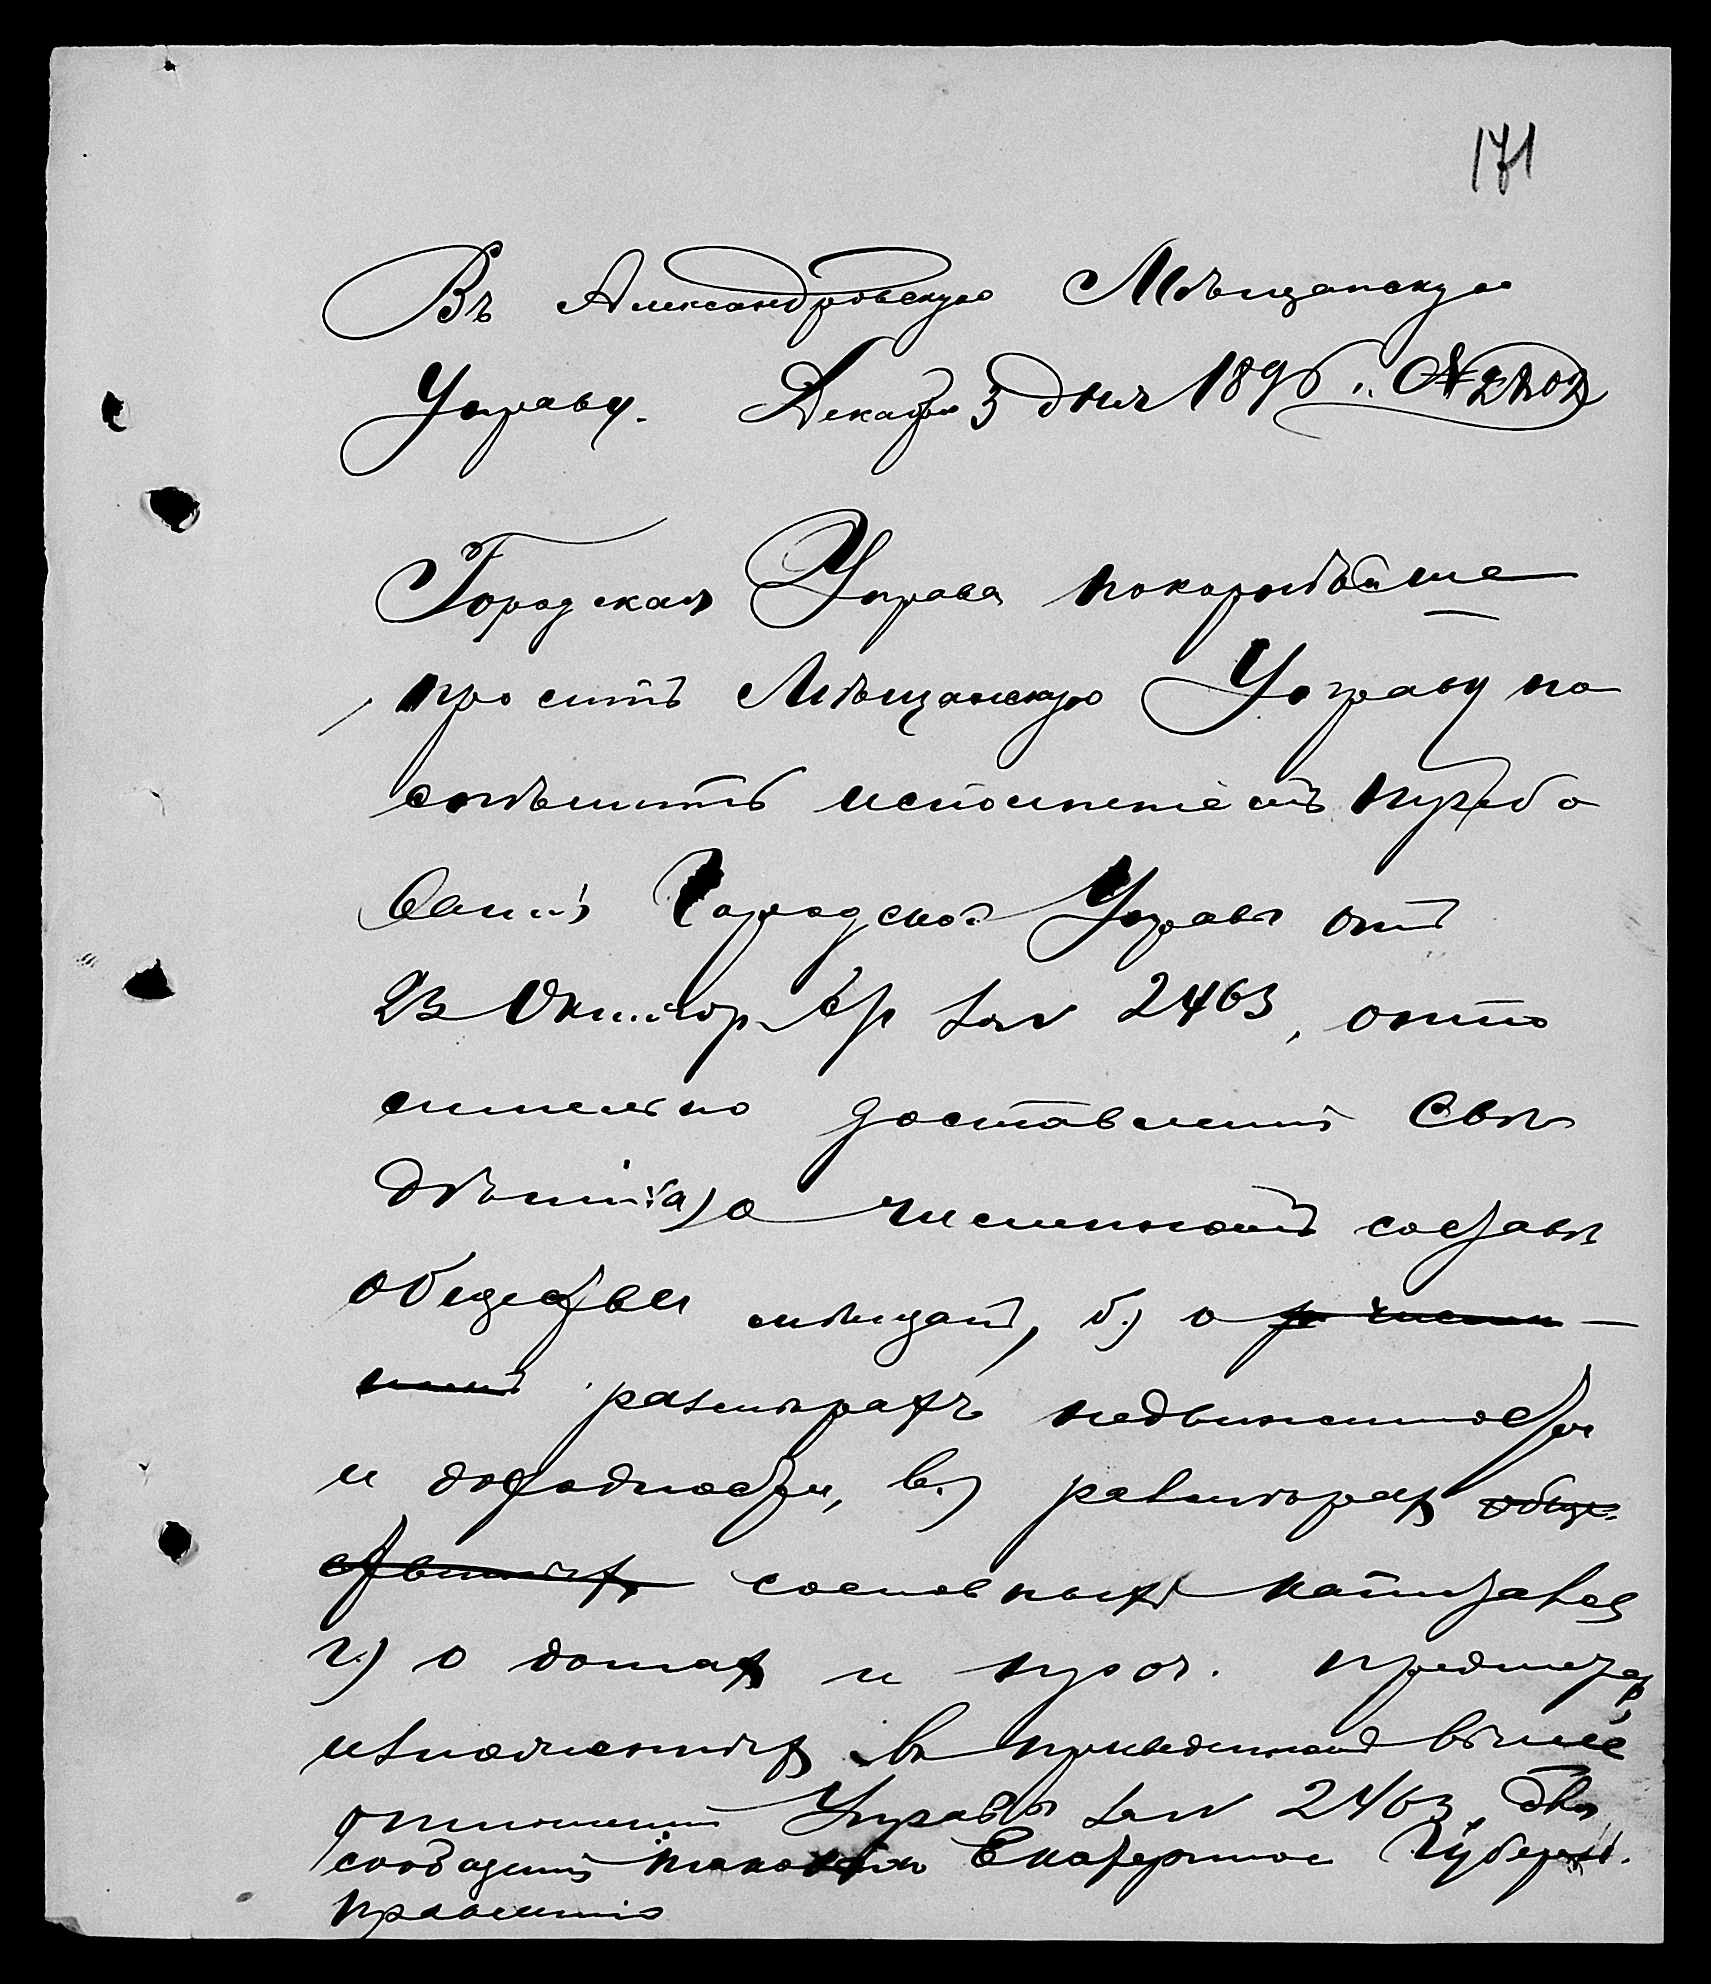 171
Въ Александровскую Мѣщанскую
Управу. Декабря 3 дня 1896 г. №
Городская Управа покорнѣйше
проситъ Мѣщанскую Управу по
спѣшить исполненіемъ требо
ванія Городской Управы отъ
23 Октября с/г за № 2463, отно
сительно доставленія свѣ
дѣній: а) о численномъ составѣ
общества мѣщанъ, б.) о числен
номъ размѣрахъ недвижимости
и доходности, в.) размѣрахъ обще
ственныхъ сословныхъ капиталовъ
г.) о домахъ и проч. предметахъ,
изложенныхъ въ приведенномъ выше
отношеніи Управы за № 2463, для
сообщенія таковыхъ Екатеринос Губерн.
правленію